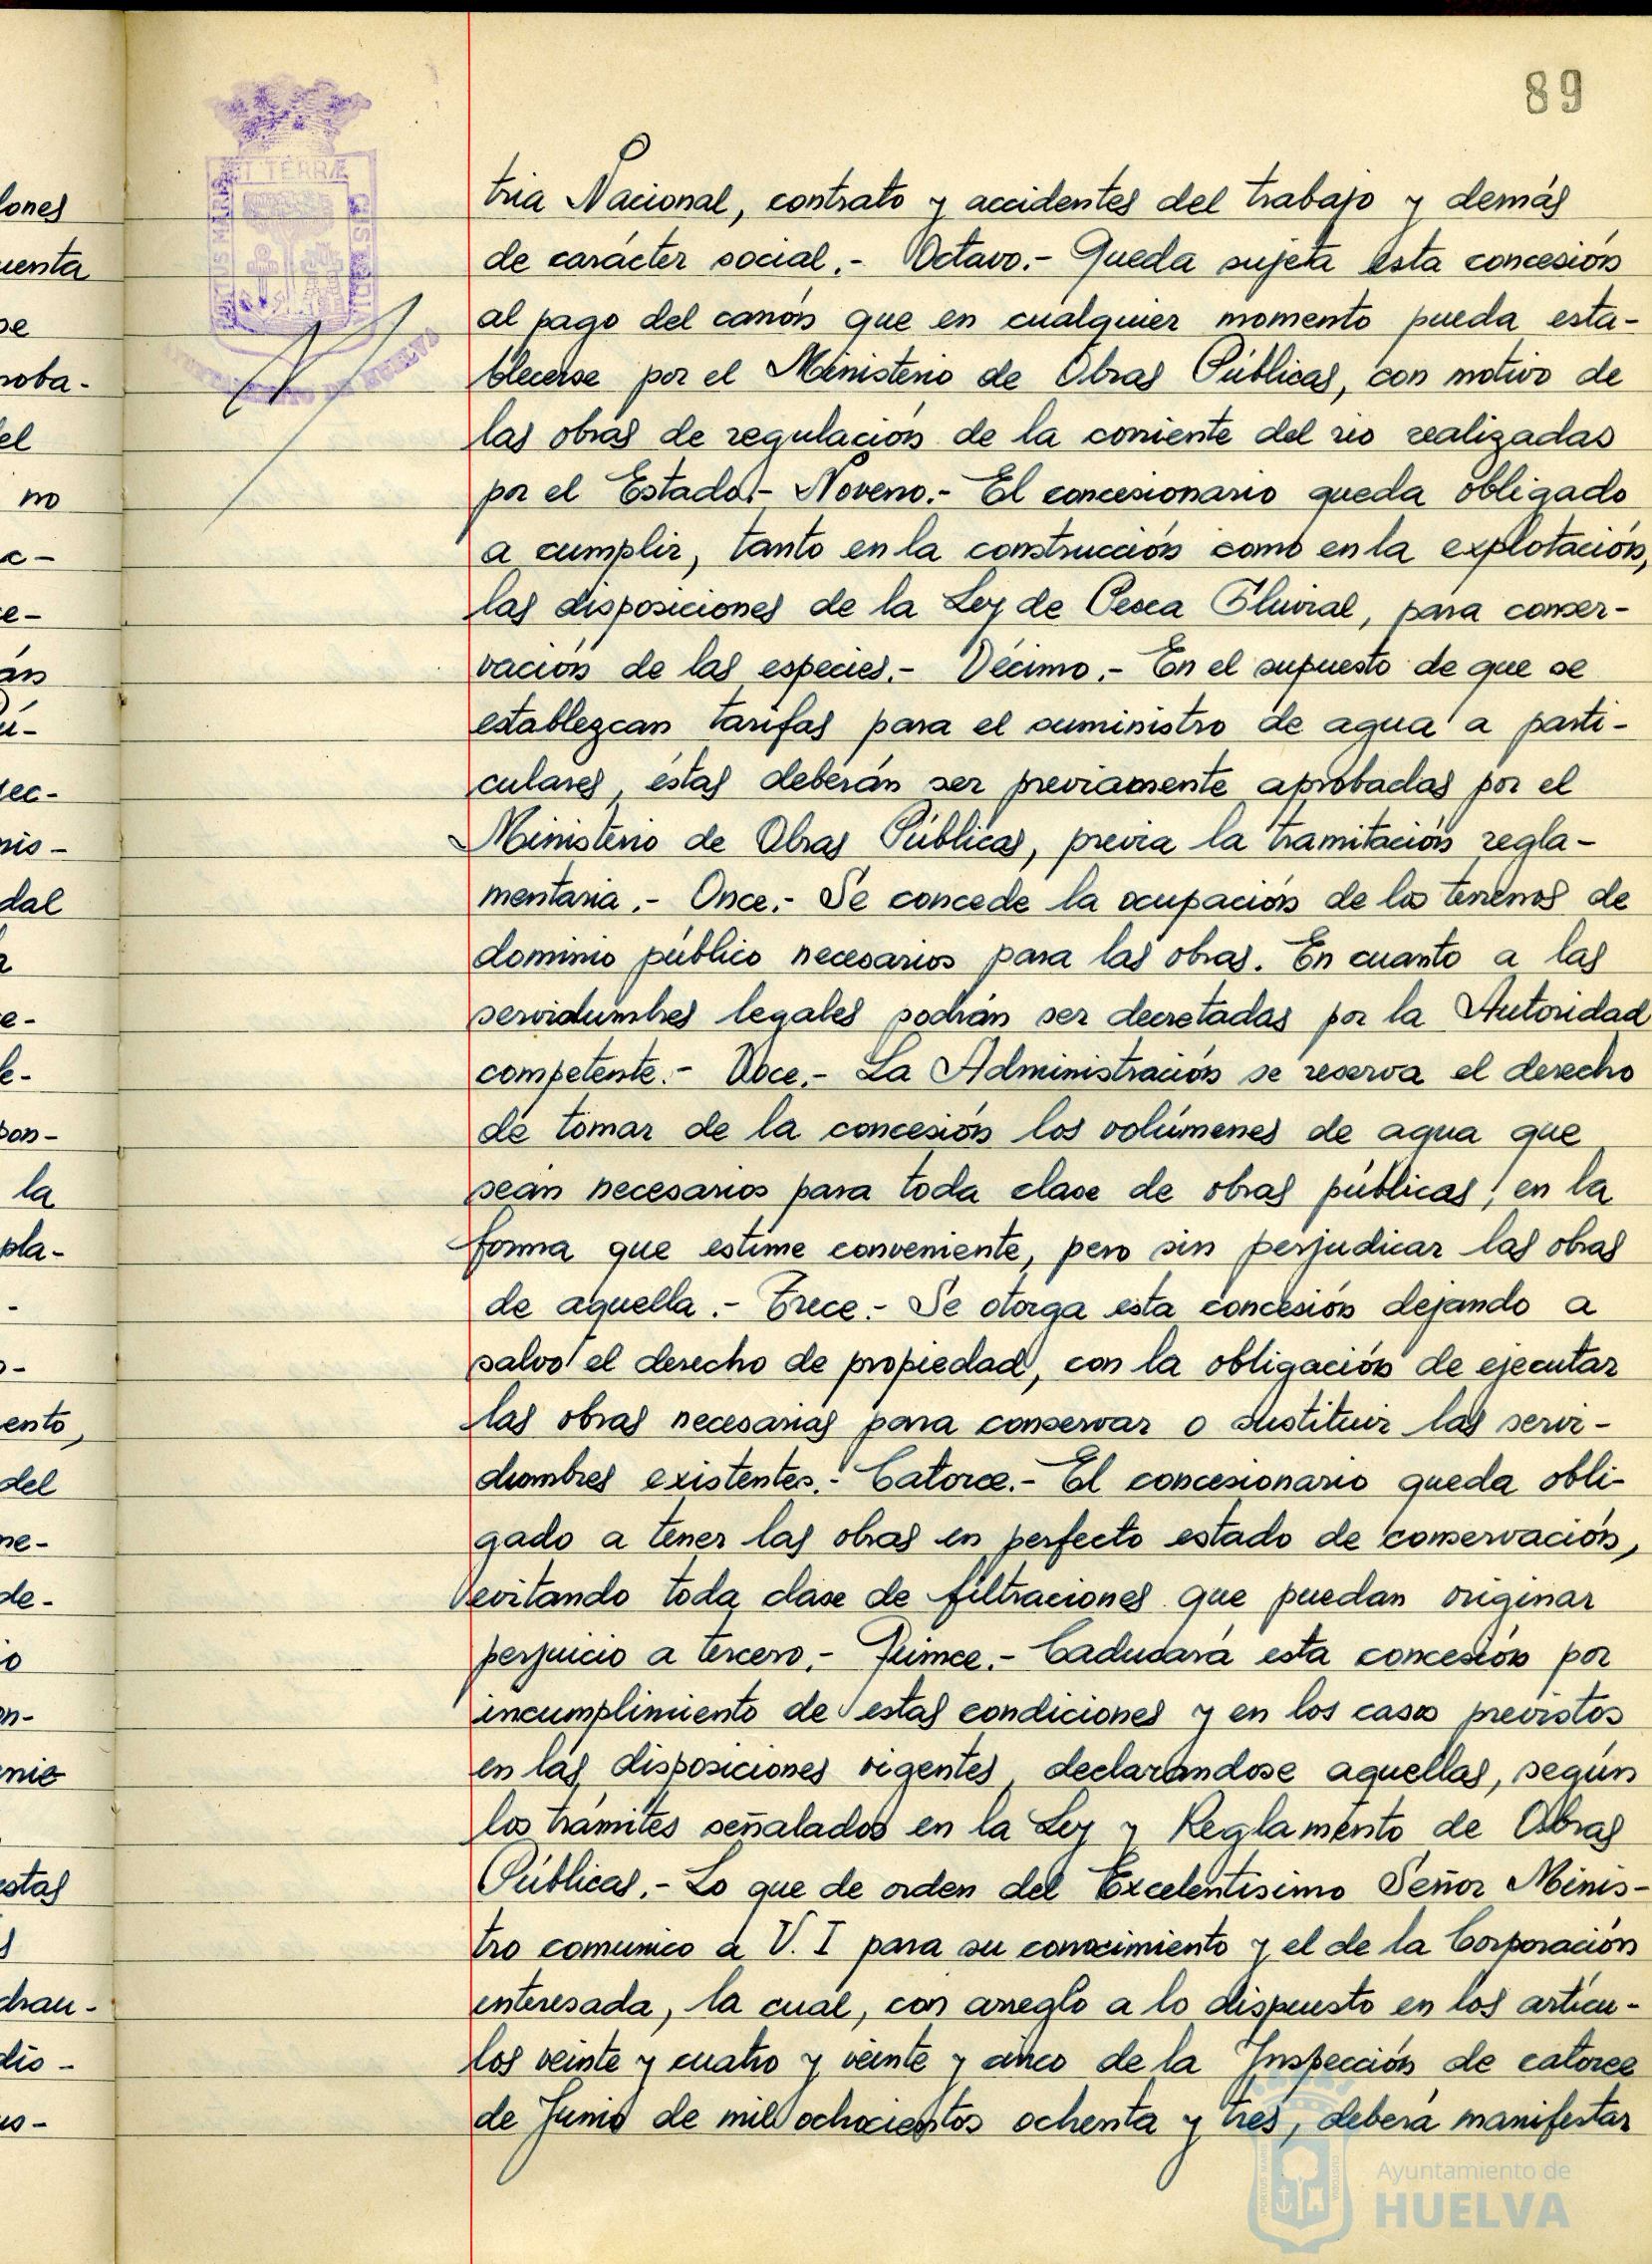 89
tria Nacional, contrato y accidentes del trabajo y demás
de carácter social.- Octavo.- Queda sujeta esta concesión
al pago del canón que en cualquier momento pueda esta-
blecerse por el Ministerio de Obras Públicas, con motivo de
las obras de regulación de la corriente del rio realizadas
por el Estado.- Noveno.- El concesionario queda obligado
a cumplir, tanto en la construcción como en la explotación,
las disposiciones de la Ley de Pesca Fluvial, para conser-
vación de las especies.- Décimo.- En el supuesto de que se
establezcan tarifas para el suministro de agua a parti-
culares, éstas deberán ser previamente aprobadas por el
Ministerio de Obras Públicas, previa la tramitación regla-
mentaria.- Once.- Se concede la ocupación de los terrenos de
dominio público necesarios para las obras. En cuanto a las
servidumbres legales podrán ser decretadas por la Autoridad
competente.- Doce.- La Administración se reserva el derecho
de tomar de la concesión los volúmenes de agua que
sean necesarios para toda clase de obras públicas, en la
forma que estime conveniente, pero sin perjudicar las obras
de aquella.- Trece.- Se otorga esta concesión dejando a
salvo el derecho de propiedad, con la obligación de ejecutar
las obras necesarias para conservar o sustituir las servi-
dumbres existentes.- Catorce.- El concesionario queda obli-
gado a tener las obras en perfecto estado de conservación,
evitando toda clase de filtraciones que puedan originar
perjuicio a tercero.- Quince.- Caducará esta concesión por
incumplimiento de estas condiciones y en los casos previstos
en las disposiciones vigentes, declarándose aquellas, según
los trámites señalados en la Ley y Reglamento de Obras
Públicas.- Lo que de orden del Excelentisimo Señor Minis-
tro comunico a V. I para su conocimiento y el de la Corporación
interesada, la cual, con arreglo a lo dispuesto en los artícu-
los veinte y cuatro y veinte y cinco de la Inspección de catorce
de Junio de mil ochocientos ochenta y tres, deberá manifestar
Ayuntamiento de
HUELVA